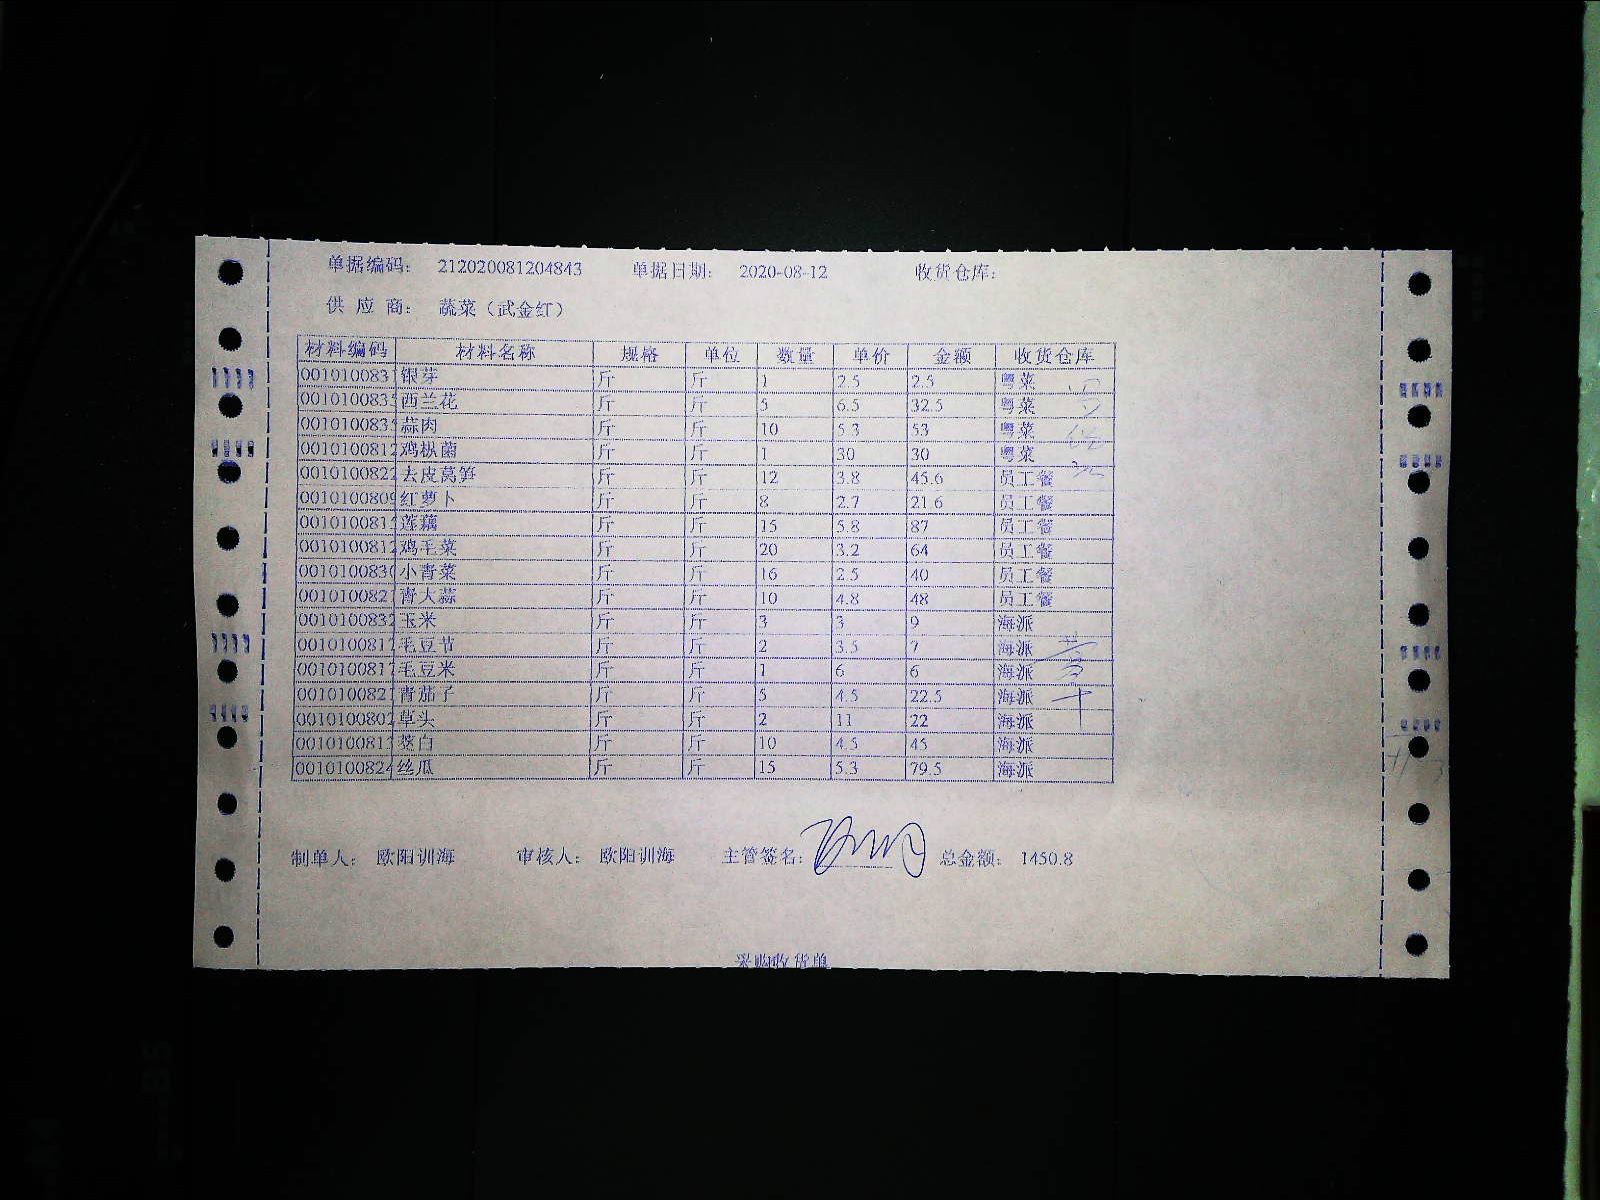 单据编码： 212020081204843 单据日期： 2020-08-12 收货仓库：
供 应 商： 蔬菜（武金红）
材料编码 材料名称 规格 单位 数量 单价 金额 收货仓库
0010100831 银芽 斤 斤 1 2.5 2.5 粤菜
001010083 西兰花 斤 斤 5 6.5 32.5 粤菜
001010083 蒜肉 斤 斤 10 5.3 53 粤菜
001010081 鸡枞菌 斤 斤 1 30 30 粤菜
001010082 去皮莴笋 斤 斤 12 3.8 45.6 员工餐
001010080 红萝卜 斤 斤 8 2.7 21.6 员工餐
001010081 莲藕 斤 斤 15 5.8 87 员工餐
001010081 鸡毛菜 斤 斤 20 3.2 64 员工餐
001010083 小青菜 斤 斤 16 2.5 40 员工餐
001010082 青大蒜 斤 斤 10 4.8 48 员工餐
001010083 玉米 斤 斤 3 3 9 海派
001010081 毛豆节 斤 斤 2 3.5 7 海派
001010081 毛豆米 斤 斤 1 6 6 海派
001010082 青茄子 斤 斤 5 4.5 22.5 海派
001010080 草头 斤 斤 2 11 22 海派
001010081 茭白 斤 斤 10 4.5 45 海派
001010082 丝瓜 斤 斤 15 5.3 79.5 海派
制单人： 欧阳训海 审核人： 欧阳训海 主管签名： 总金额： 1450.8
采购收货单